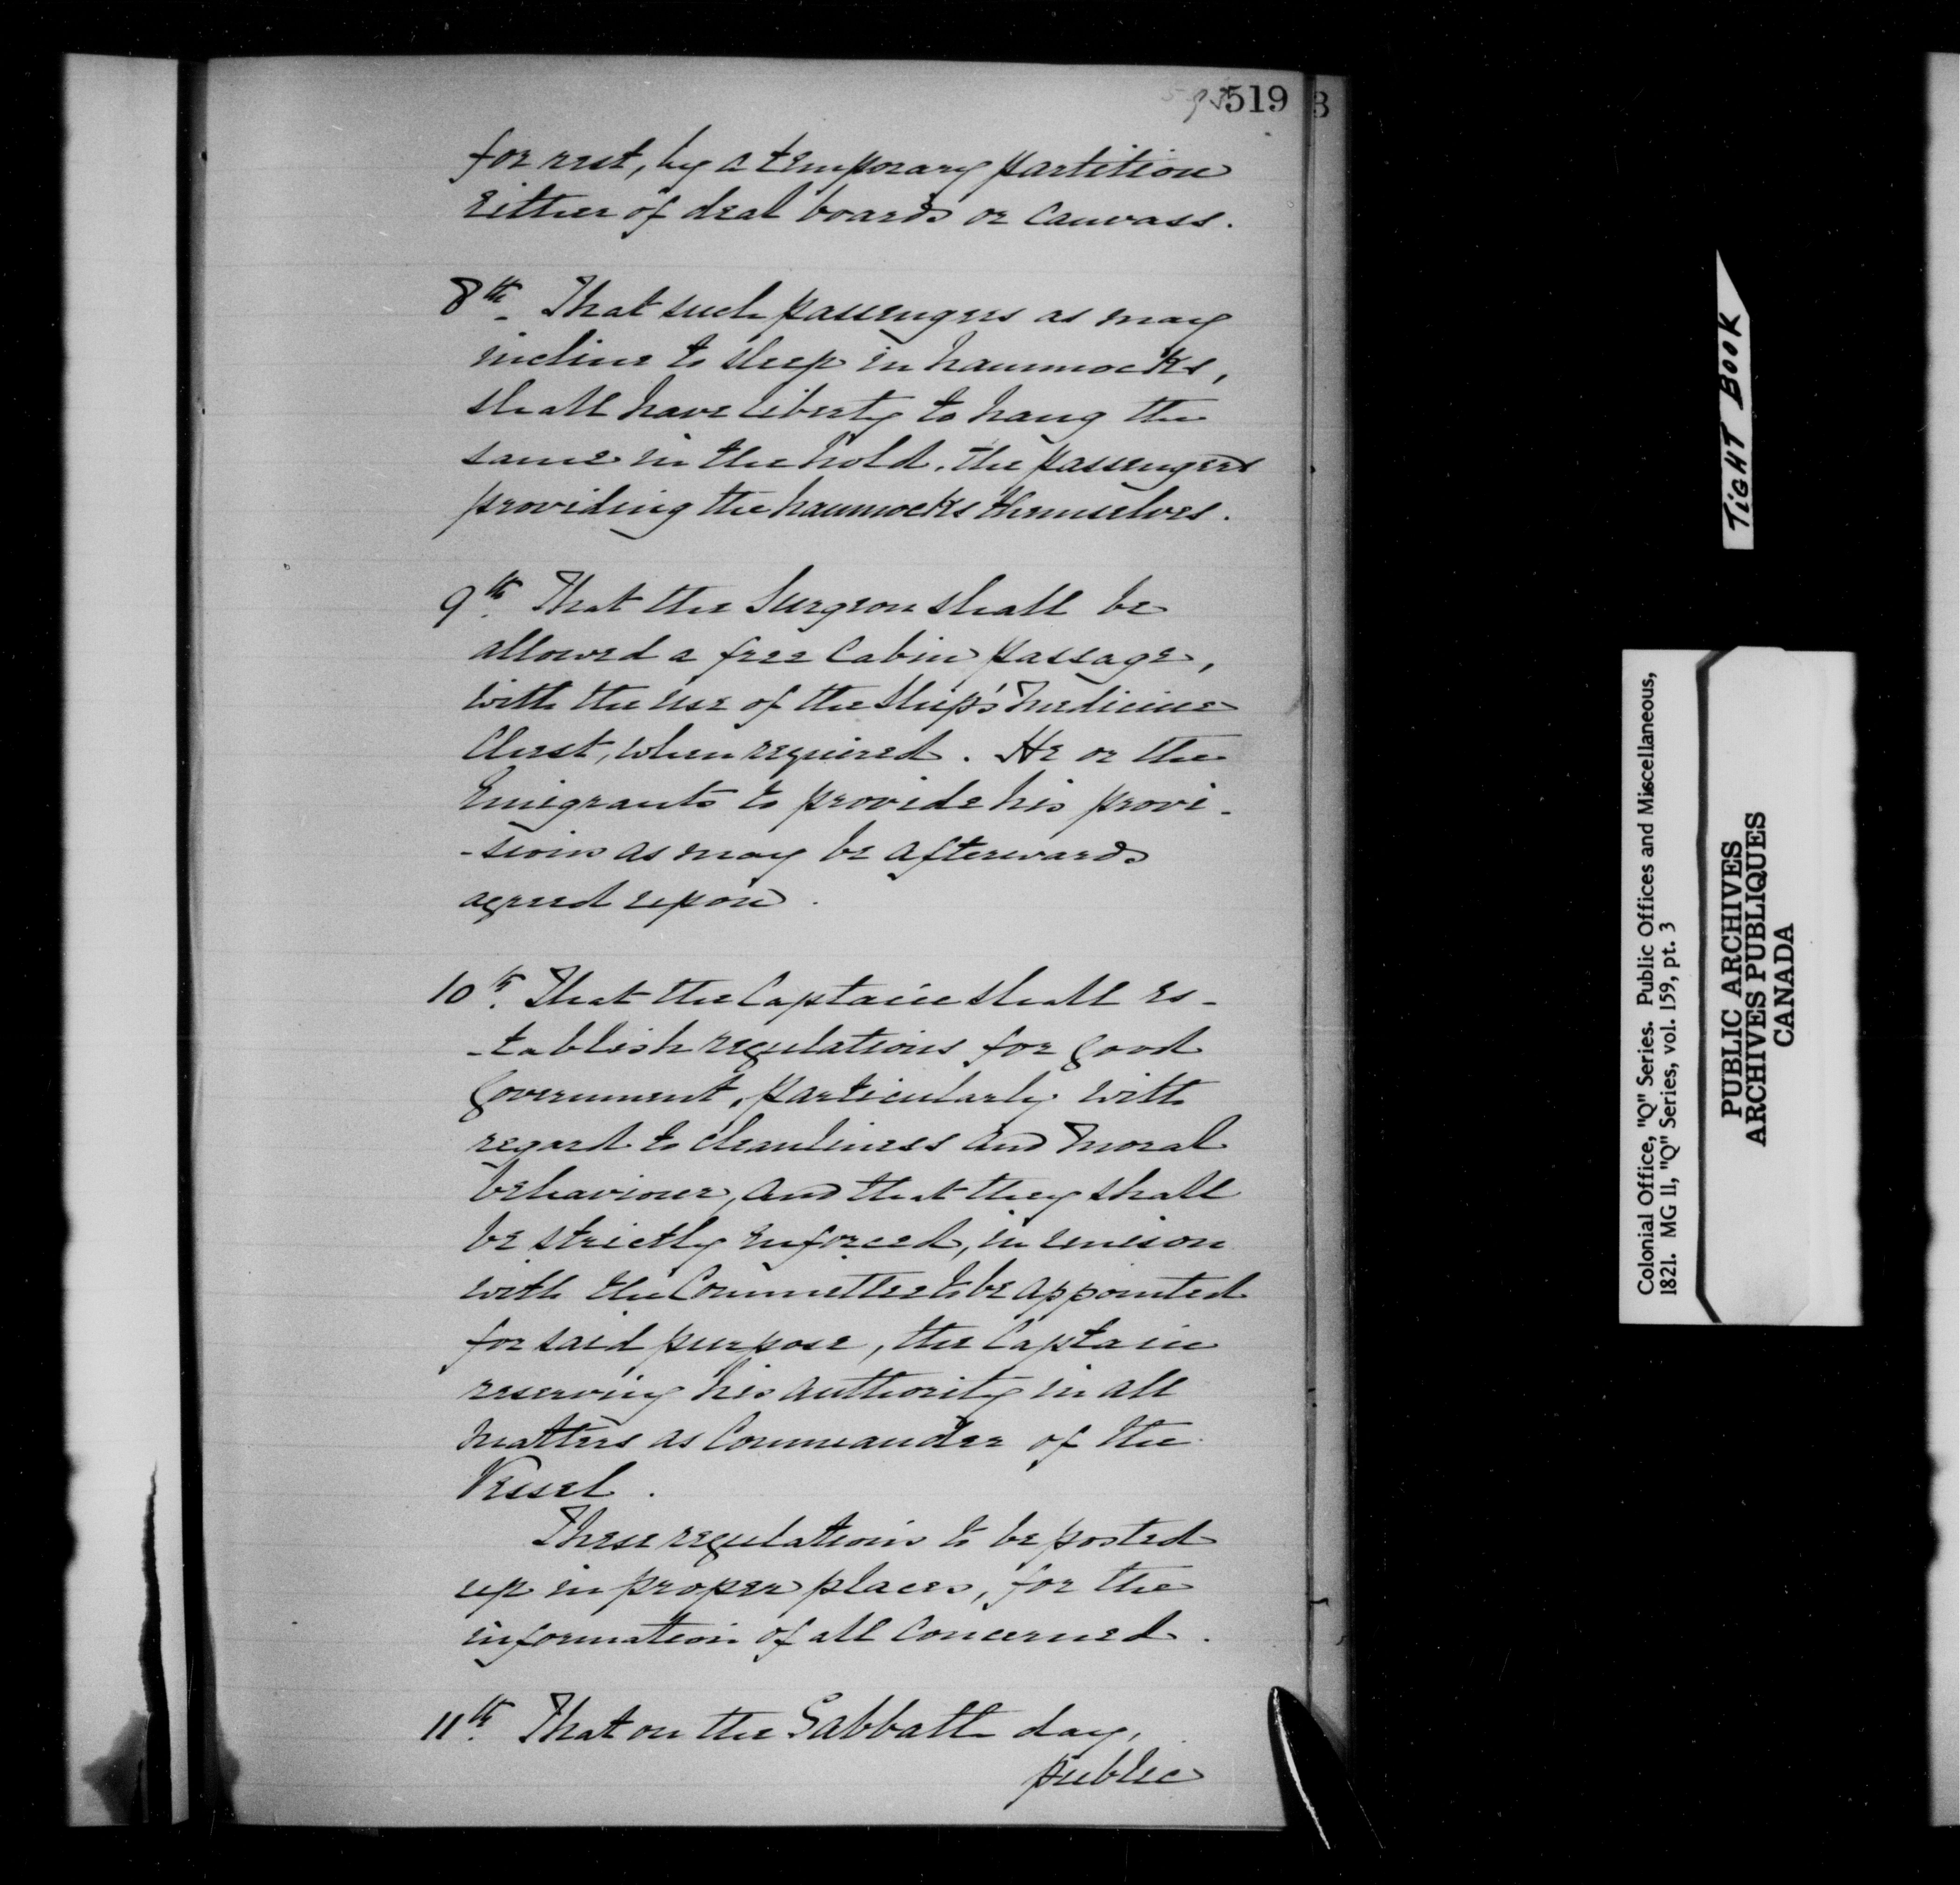 519
for rest, by a temporary partition
either of deal boards or canvass.
8th. That such passengers as may
incline to sleep in hammocks,
shall have liberty to hang the
same in the hold, the passengers
providing the hammocks themselves.
9th. That the Surgeon shall be
allowed a free Cabin passage,
with the use of the Ship's Medicine
Chest, when required. He or the
Emigrants to provide his provi-
-sions as may be afterwards
agreed upon.
10th. That the Captain shall es-
-tablish regulations for good
Government, particularly with
regard to cleanliness and moral
behaviour, and that they shall
be strictly enforced, in unison
with the Committee to be appointed
for said purpose, the Captain
reserving his authority in all
matters as Commander of the
Vessel.
These regulations to be posted
up in proper places, for the
information of all concerned.
11th. That on the Sabbath day,
public
TIGHT BOOK
Colonial Office, "Q" Series. Public Offices and Miscellaneous,
1821. MG 11, "Q" Series, vol. 159, pt. 3
PUBLIC ARCHIVES
ARCHIVES PUBLIQUES
CANADA